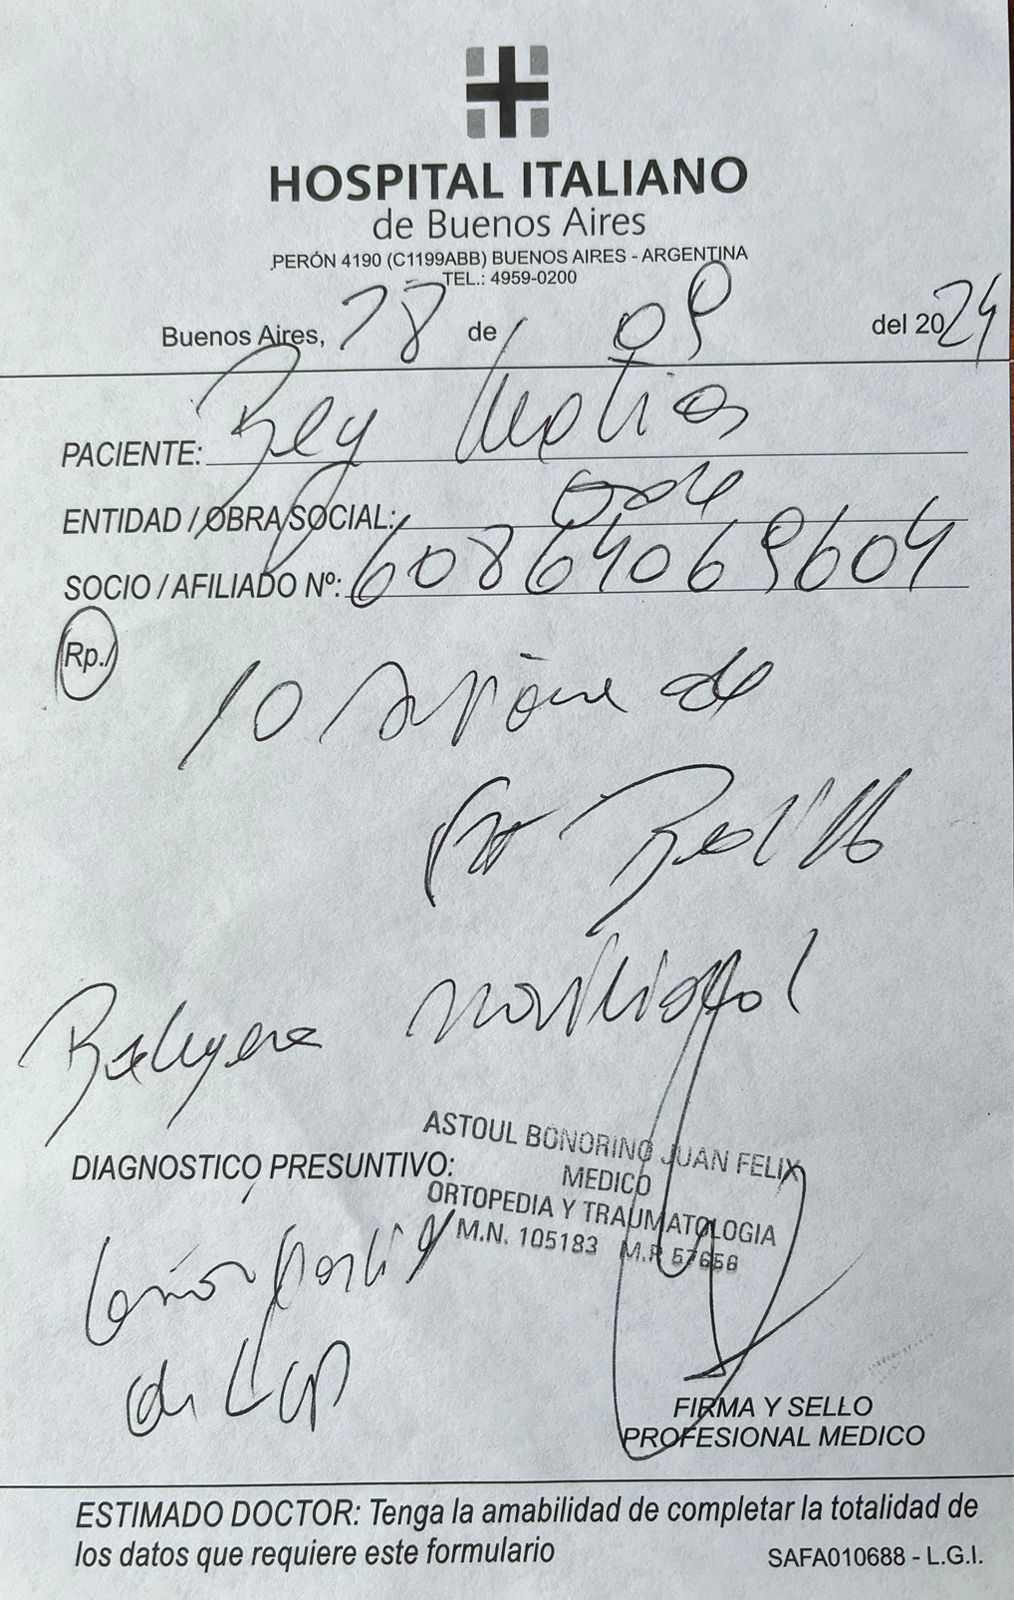 HOSPITAL ITALIANO
de Buenos Aires
PERÓN 4190 (C1199ABB) BUENOS AIRES - ARGENTINA
TEL.: 4959-0200
Buenos Aires, 28 de 09 del 2024
PACIENTE: Rey Matias
ENTIDAD / OBRA SOCIAL: osde
SOCIO / AFILIADO Nº: 60864069604
Rp./
10 sesiones de
Rodilla
ASTOUL BONORINO JUAN FELIX
MEDICO
ORTOPEDIA Y TRAUMATOLOGIA
M.N. 105183 M.P. 57656
DIAGNOSTICO PRESUNTIVO:
lesión parcial
de LCP
FIRMA Y SELLO
PROFESIONAL MEDICO
ESTIMADO DOCTOR: Tenga la amabilidad de completar la totalidad de
los datos que requiere este formulario
SAFA010688 - L.G.I.